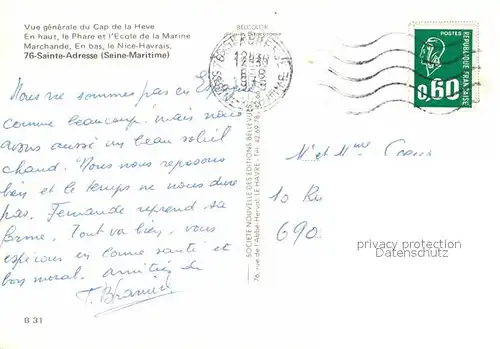 Vue générale du Cap de la Heve
En haut, le Phare et l'Ecole de la Marine
Marchande, En bas, le Nice-Havrais,
76-Sainte-Adresse (Seine-Maritime)
Nous ne sommes pas en
comme beaucoup, mais nous
avons aussi un beau soleil
chaud. Nous nous reposons
bien et le temps ne nous dure
pas. Fernande reprend sa
forme. Tout va bien, vous
espérons en bonne santé et
bon moral. amitiés de
B 31
BELCOLOR
SOCIETE NOUVELLE DES EDITIONS BELLEVUES
76, rue de l'Abbé-Herval, LE HAVRE - Tél. 42.69.78
POSTES
REPUBLIQUE FRANÇAISE
0,60
M et Mme
10 R
690
privacy protection
Datenschutz